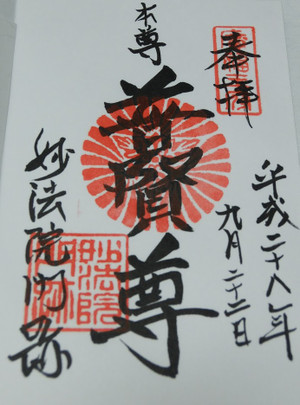 奉拝
平成二十八年
九月二十二日
本尊
普賢尊
妙法院門跡
妙法院